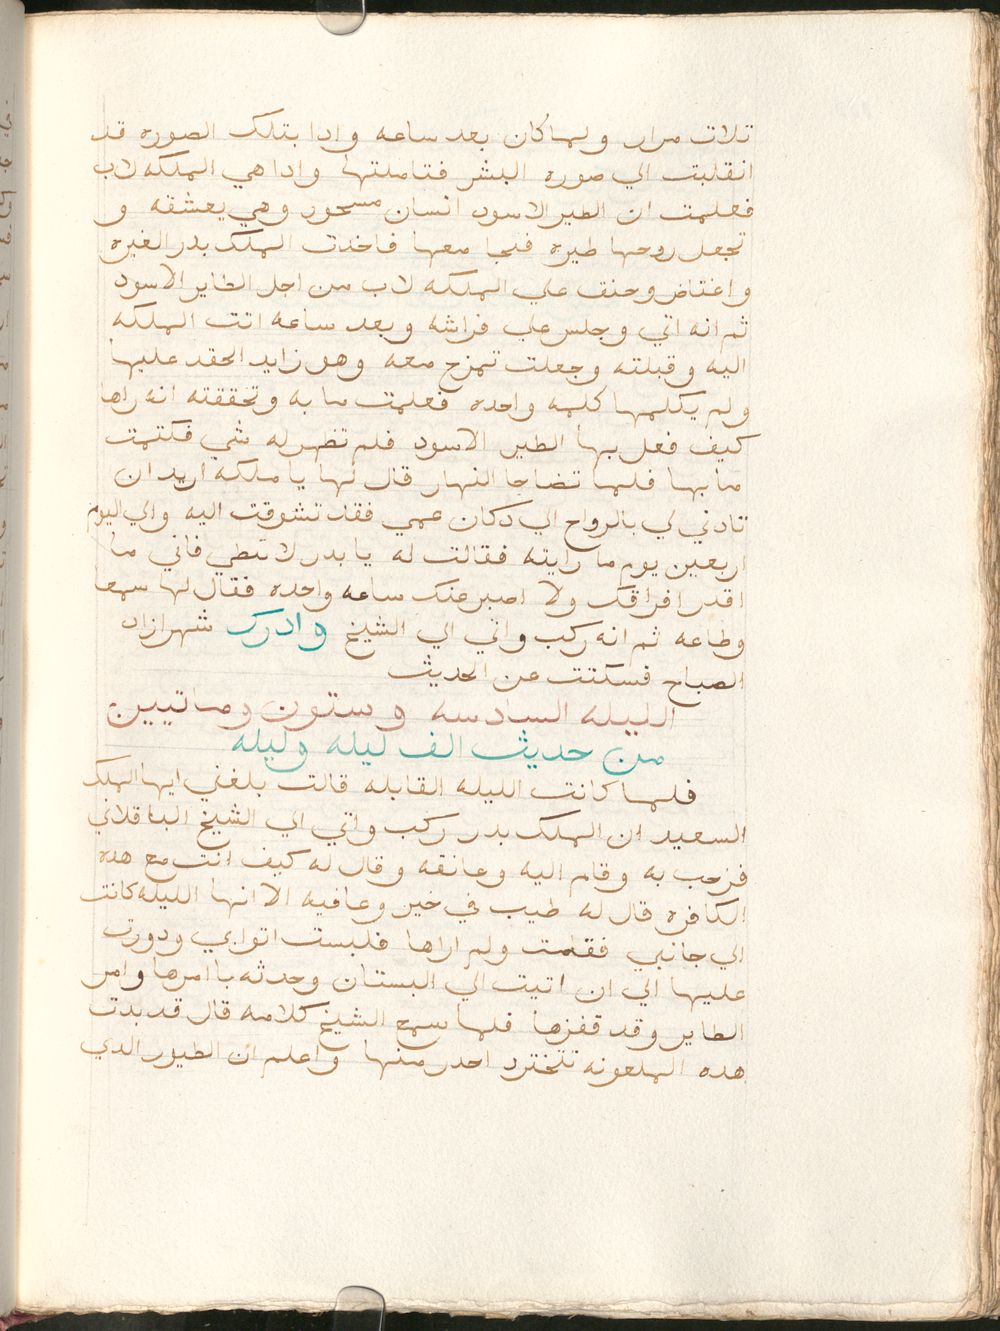 تلات مرار ولما كان بعد ساعه وادا بتلك الصوره قد
انقلبت الي صوره البشر فتاملتها واداهي الملكه لاب
فعلمت ان الطير الاسود انسان مسحور وهي يعشقه و
تجعل روحها طيره فيجا معها فاخدت الملك بدر الغيره
واغتاض وحنف علي الملكه لاب من اجل الطاير الاسود
ثم انه اتي وجلس علي فراشه وبعد ساعه اتت الملكه
اليه وقبلته وجعلت تمزح معه وهو زايد الحقد عليها
ولم يكلمها كلمه واحده فعلمت ما به وتحققته انه راها
كيف فعل بها الطير الاسود فلم تظهر له شي فكتمت
ما بها فلما تضاحا النهار قال لها يا ملكه اريد ان
تادني لي بالرواح الي دكان عمي فقد تشوقت اليه والي اليوم
اربعين يوم ما رايته فقالت له يا بدر لا تبطي فاني ما
اقدر افراقك ولا اصبر عنك ساعه واحده فقال لها سمعا
وطاعه ثم انه ركب واتي الي الشيخ وادرك شهرازاد
الصباح فسكتت عن الحديث
الليله السادسه وستون وماتيين
من حديث الف ليله وليله
فلما كانت الليله القابله قالت بلغني ايها الملك
السعيد ان الملك بدر ركب واتي الي الشيخ الباقلاني
فرحب به وقام اليه وعانقه وقال له كيف انت مع هده
الكافره قال له طيب في خير وعافيه الا انها الليله كانت
الي جانبي فقامت ولم اراها فلبست اتوابي ودورت
عليها الي ان اتيت الي البستان وحدثه باامرها وامر
الطاير وقد قفزها فلما سمع الشيخ كلامه قال قد بدت
هده الملعونه احدر منها واعلم ان الطيور الدي